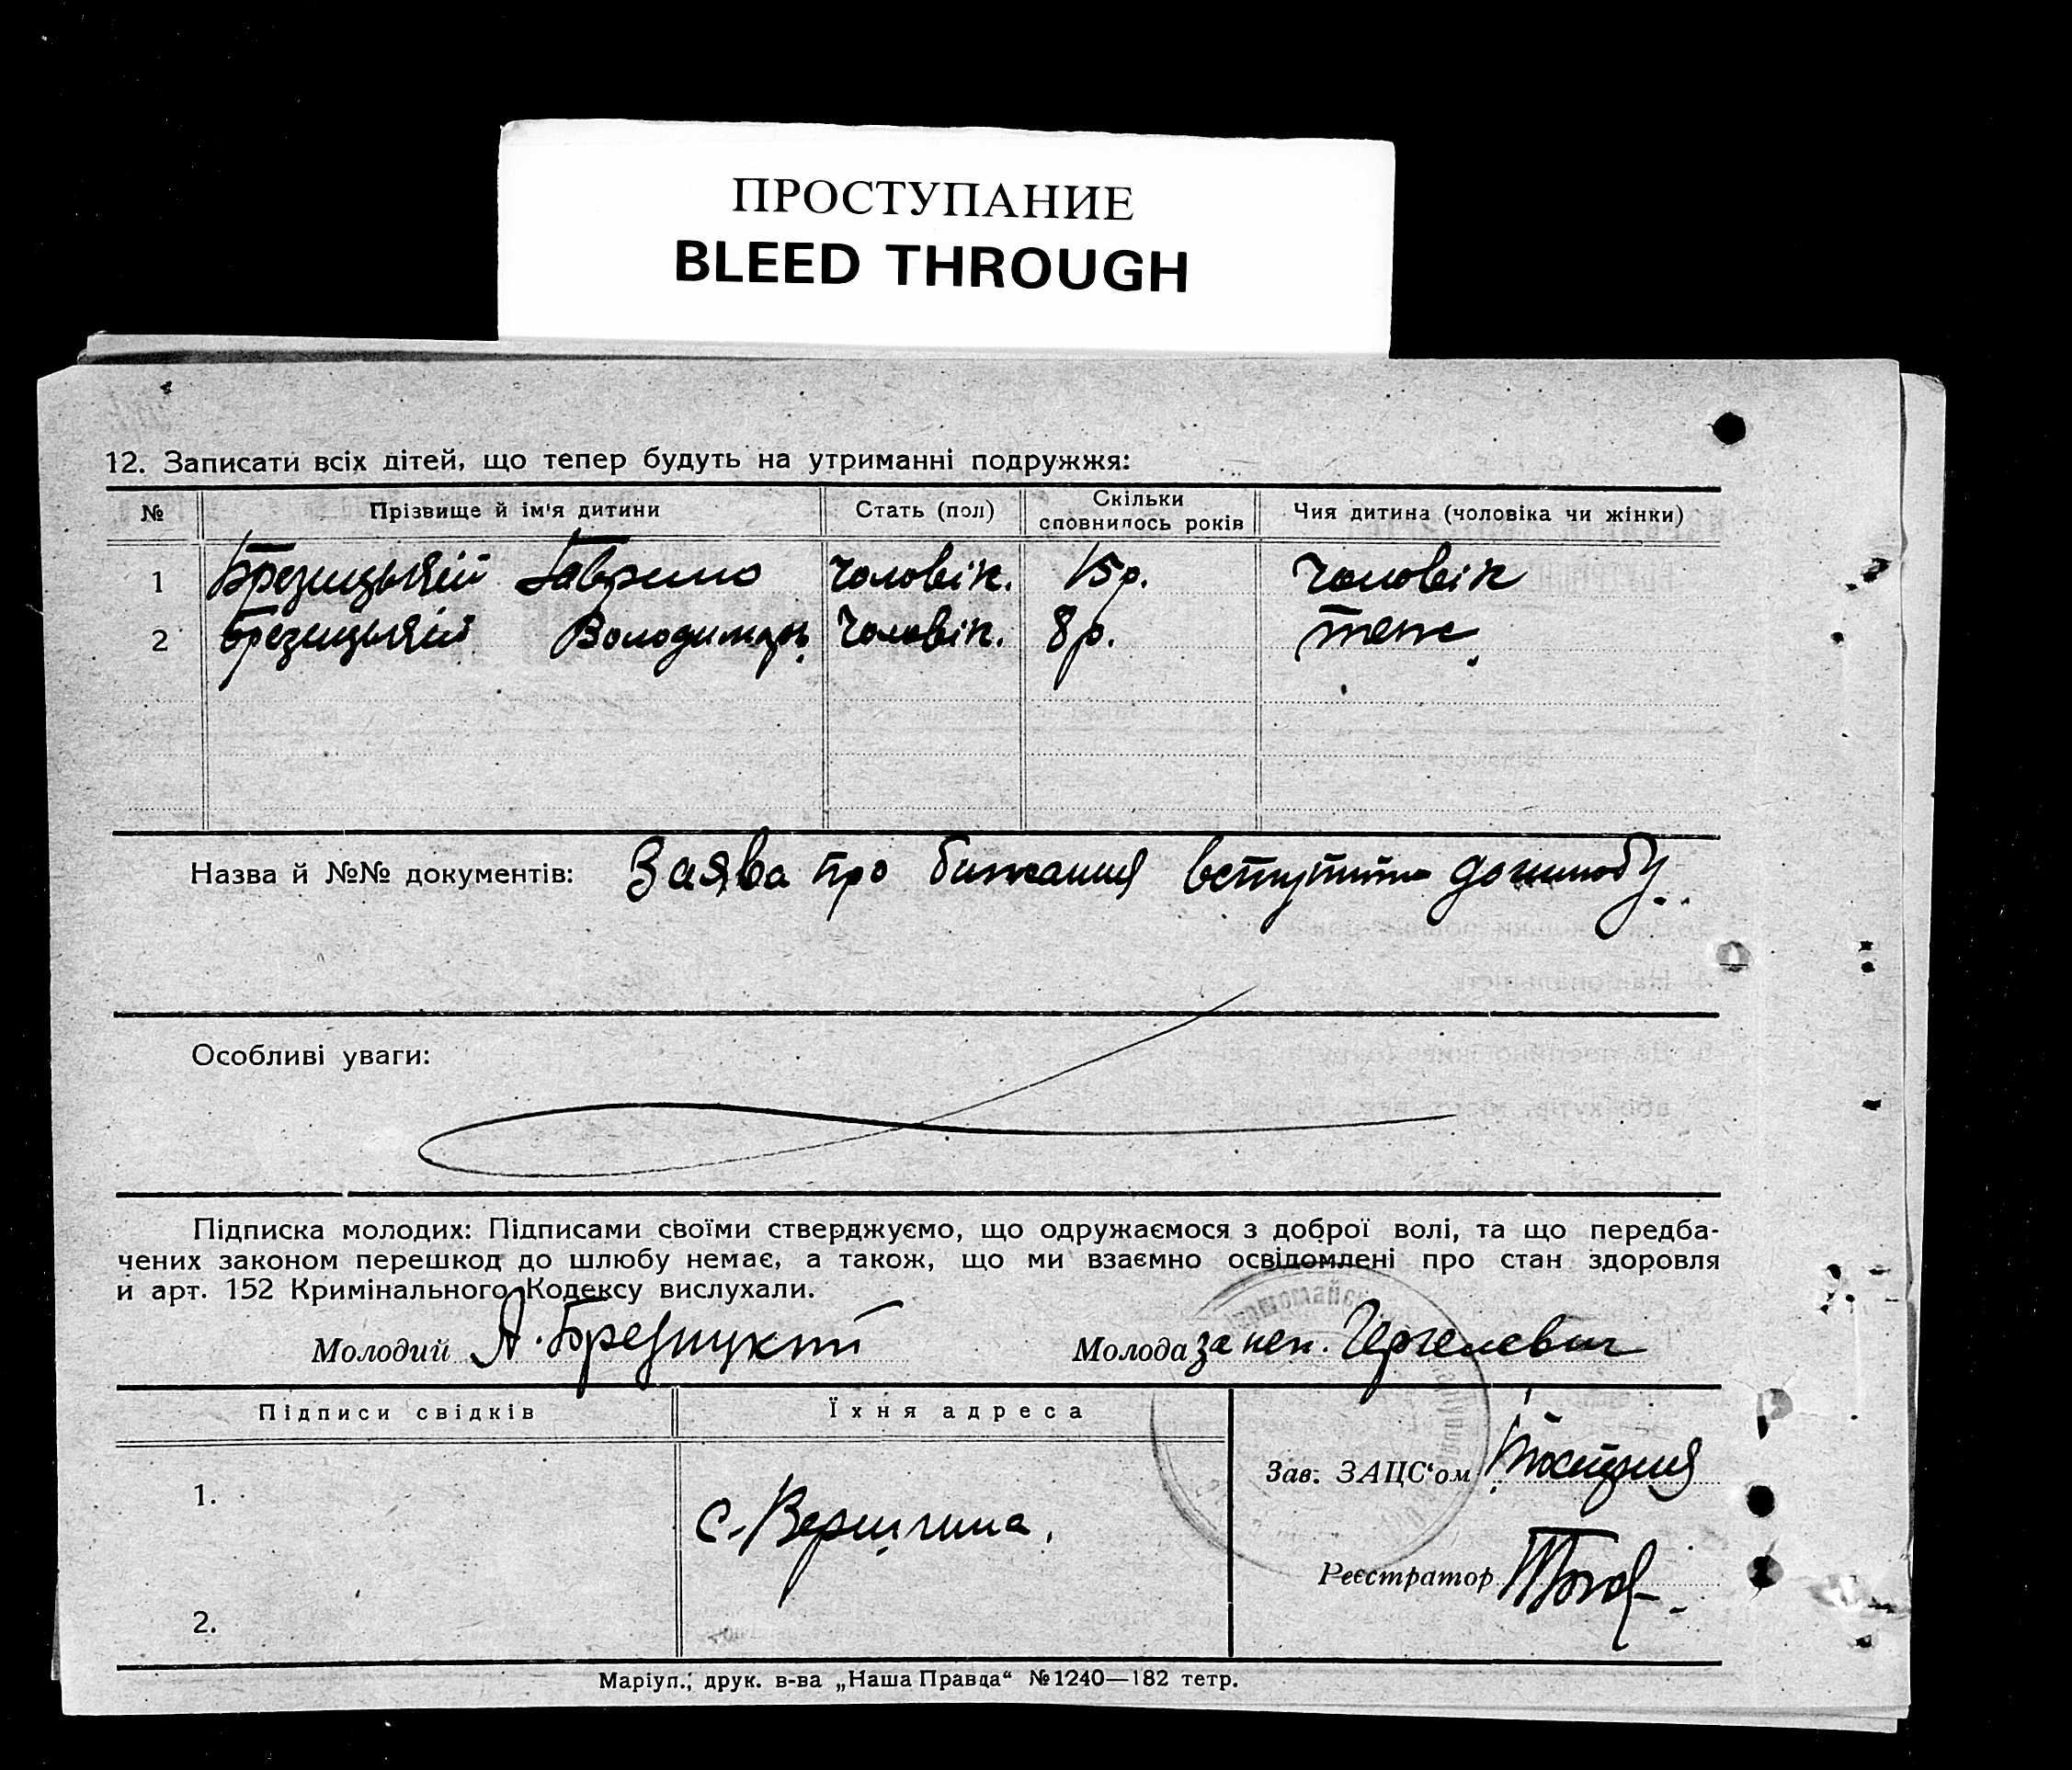 ПРОСТУПАНИЕ
BLEED THROUGH
12. Записати всіх дітей, що тепер будуть на утриманні подружжя:
№ Прізвище й ім'я дитини Стать (пол) Скільки сповнилось років Чия дитина (чоловіка чи жінки)
1 Брезицький Гаврило чоловік. 15 р. чоловік
2 Брезицький Володимир. чоловік. 8 р. теж.
Назва й №№ документів: Заява про бажання вступити до шлюбу.
Особливі уваги:
Підписка молодих: Підписами своїми стверджуємо, що одружаємося з доброї волі, та що передба-
чених законом перешкод до шлюбу немає, а також, що ми взаємно освідомлені про стан здоровля
и арт. 152 Кримінального Кодексу вислухали.
Молодий А. Брезицкий Молода за неп.
Підписи свідків Їхня адреса
Зав. ЗАЦС'ом
1. с.
Реєстратор
2.
Маріуп., друк. в-ва „Наша Правда“ №1240—182 тетр.